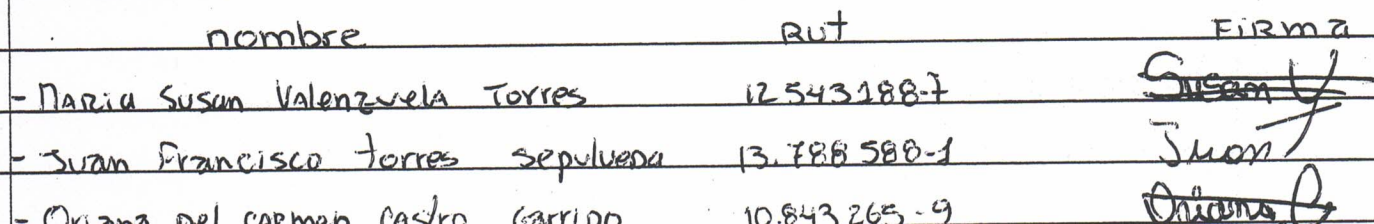 nombre Rut FiRma
- MARia Susan Valenzuela Torres 12.543188-7 Susan V
- Juan Francisco torres sepulveda 13.788 588-1 Juan
- Oriana del carmen Castro Garrido 10.843 265-9 Oriana C